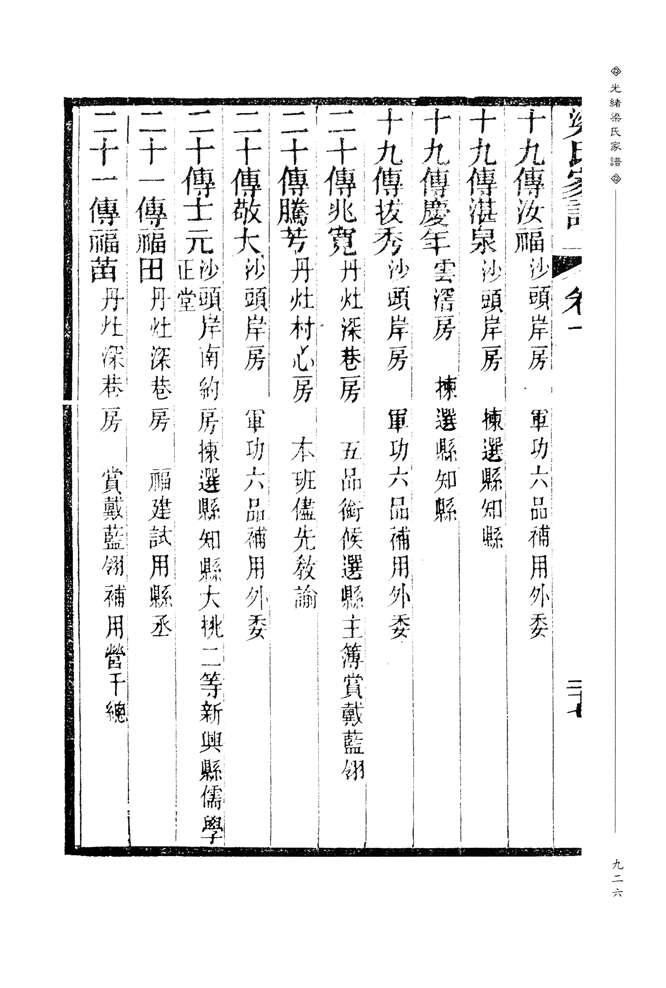 光緒梁氏家譜
梁氏家譜 卷一 二十七
十九傳汝福 沙頭岸房 軍功六品補用外委
十九傳湛泉 沙頭岸房 揀選縣知縣
十九傳慶年 雲滘房 揀選縣知縣
十九傳拔秀 沙頭岸房 軍功六品補用外委
二十傳兆寬 丹灶深巷房 五品銜候選縣主簿賞戴藍翎
二十傳騰芳 丹灶村心房 本班儘先教諭
二十傳敬大 沙頭岸房 軍功六品補用外委
二十傳士元 沙頭岸南約房揀選縣知縣大挑二等新興縣儒學
正堂
二十一傳福田 丹灶深巷房 福建試用縣丞
二十一傳福苗 丹灶深巷房 賞戴藍翎補用營千總
九二六